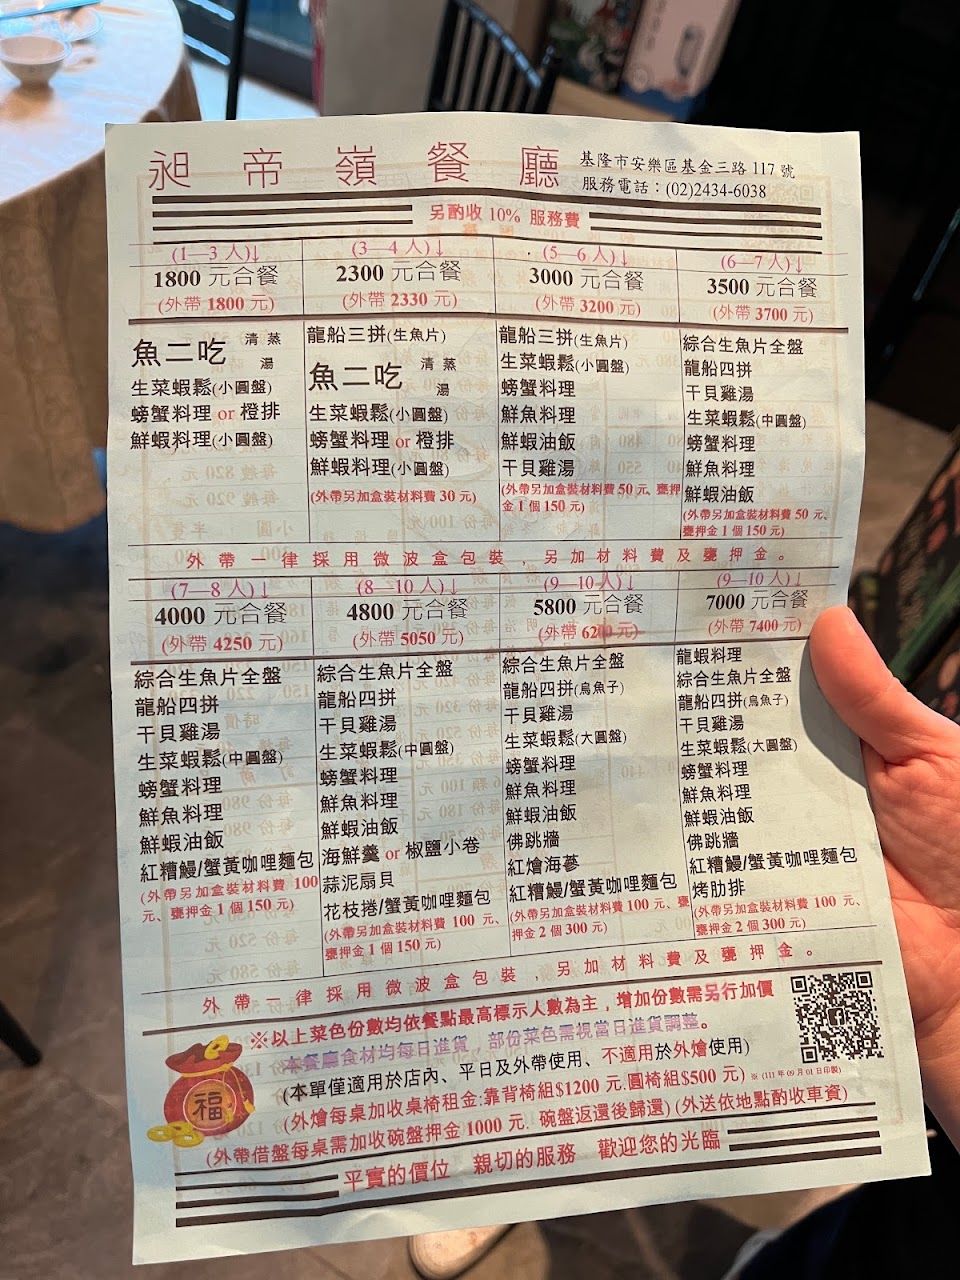 昶帝嶺餐廳
基隆市安樂區基金三路 117 號
服務電話：(02)2434-6038
另酌收 10% 服務費
(1—3 人)↓
1800 元合餐
(外帶 1800 元)
魚二吃 清蒸 湯
生菜蝦鬆(小圓盤)
螃蟹料理 or 橙排
鮮蝦料理(小圓盤)
(3—4 人)↓
2300 元合餐
(外帶 2330 元)
龍船三拼(生魚片)
魚二吃 清蒸 湯
生菜蝦鬆(小圓盤)
螃蟹料理 or 橙排
鮮蝦料理(小圓盤)
(外帶另加盒裝材料費 30 元)
(5—6 人)↓
3000 元合餐
(外帶 3200 元)
龍船三拼(生魚片)
生菜蝦鬆(小圓盤)
螃蟹料理
鮮魚料理
鮮蝦油飯
干貝雞湯
(外帶另加盒裝材料費 50 元、甕押
金 1 個 150 元)
(6—7 人)↓
3500 元合餐
(外帶 3700 元)
綜合生魚片全盤
龍船四拼
干貝雞湯
生菜蝦鬆(中圓盤)
螃蟹料理
鮮魚料理
鮮蝦油飯
(外帶另加盒裝材料費 50 元、
甕押金 1 個 150 元)
外帶一律採用微波盒包裝，另加材料費及甕押金。
(7—8 人)↓
4000 元合餐
(外帶 4250 元)
綜合生魚片全盤
龍船四拼
干貝雞湯
生菜蝦鬆(中圓盤)
螃蟹料理
鮮魚料理
鮮蝦油飯
紅糟鰻/蟹黃咖哩麵包
(外帶另加盒裝材料費 100
元、甕押金 1 個 150 元)
(8—10 人)↓
4800 元合餐
(外帶 5050 元)
綜合生魚片全盤
龍船四拼
干貝雞湯
生菜蝦鬆(中圓盤)
螃蟹料理
鮮魚料理
鮮蝦油飯
海鮮羹 or 椒鹽小卷
蒜泥扇貝
花枝捲/蟹黃咖哩麵包
(外帶另加盒裝材料費 100 元、
甕押金 1 個 150 元)
(9—10 人)↓
5800 元合餐
(外帶 6200 元)
綜合生魚片全盤
龍船四拼(烏魚子)
干貝雞湯
生菜蝦鬆(大圓盤)
螃蟹料理
鮮魚料理
鮮蝦油飯
佛跳牆
紅燴海蔘
紅糟鰻/蟹黃咖哩麵包
(外帶另加盒裝材料費 100 元、甕
押金 2 個 300 元)
(9—10 人)↓
7000 元合餐
(外帶 7400 元)
龍蝦料理
綜合生魚片全盤
龍船四拼(烏魚子)
干貝雞湯
生菜蝦鬆(大圓盤)
螃蟹料理
鮮魚料理
鮮蝦油飯
佛跳牆
紅糟鰻/蟹黃咖哩麵包
烤肋排
(外帶另加盒裝材料費 100 元、
甕押金 2 個 300 元)
外帶一律採用微波盒包裝，另加材料費及甕押金。
※以上菜色份數均依餐點最高標示人數為主，增加份數需另行加價
本餐廳食材均每日進貨，部份菜色需視當日進貨調整。
(本單僅適用於店內、平日及外帶使用、不適用於外燴使用)
(外燴每桌加收桌椅租金:靠背椅組$1200 元.圓椅組$500 元) ※ (111 年 09 月 01 日印製)
(外帶借盤每桌需加收碗盤押金 1000 元. 碗盤返還後歸還) (外送依地點酌收車資)
平實的價位 親切的服務 歡迎您的光臨
福